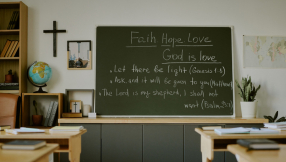 Faith Hope Love
God is love
• Let there be light (Genesis 1:3)
• Ask, and it will be given to you (Matthew 7:7)
• The Lord is my shepherd, I shall not
want (Psalm 23:1)